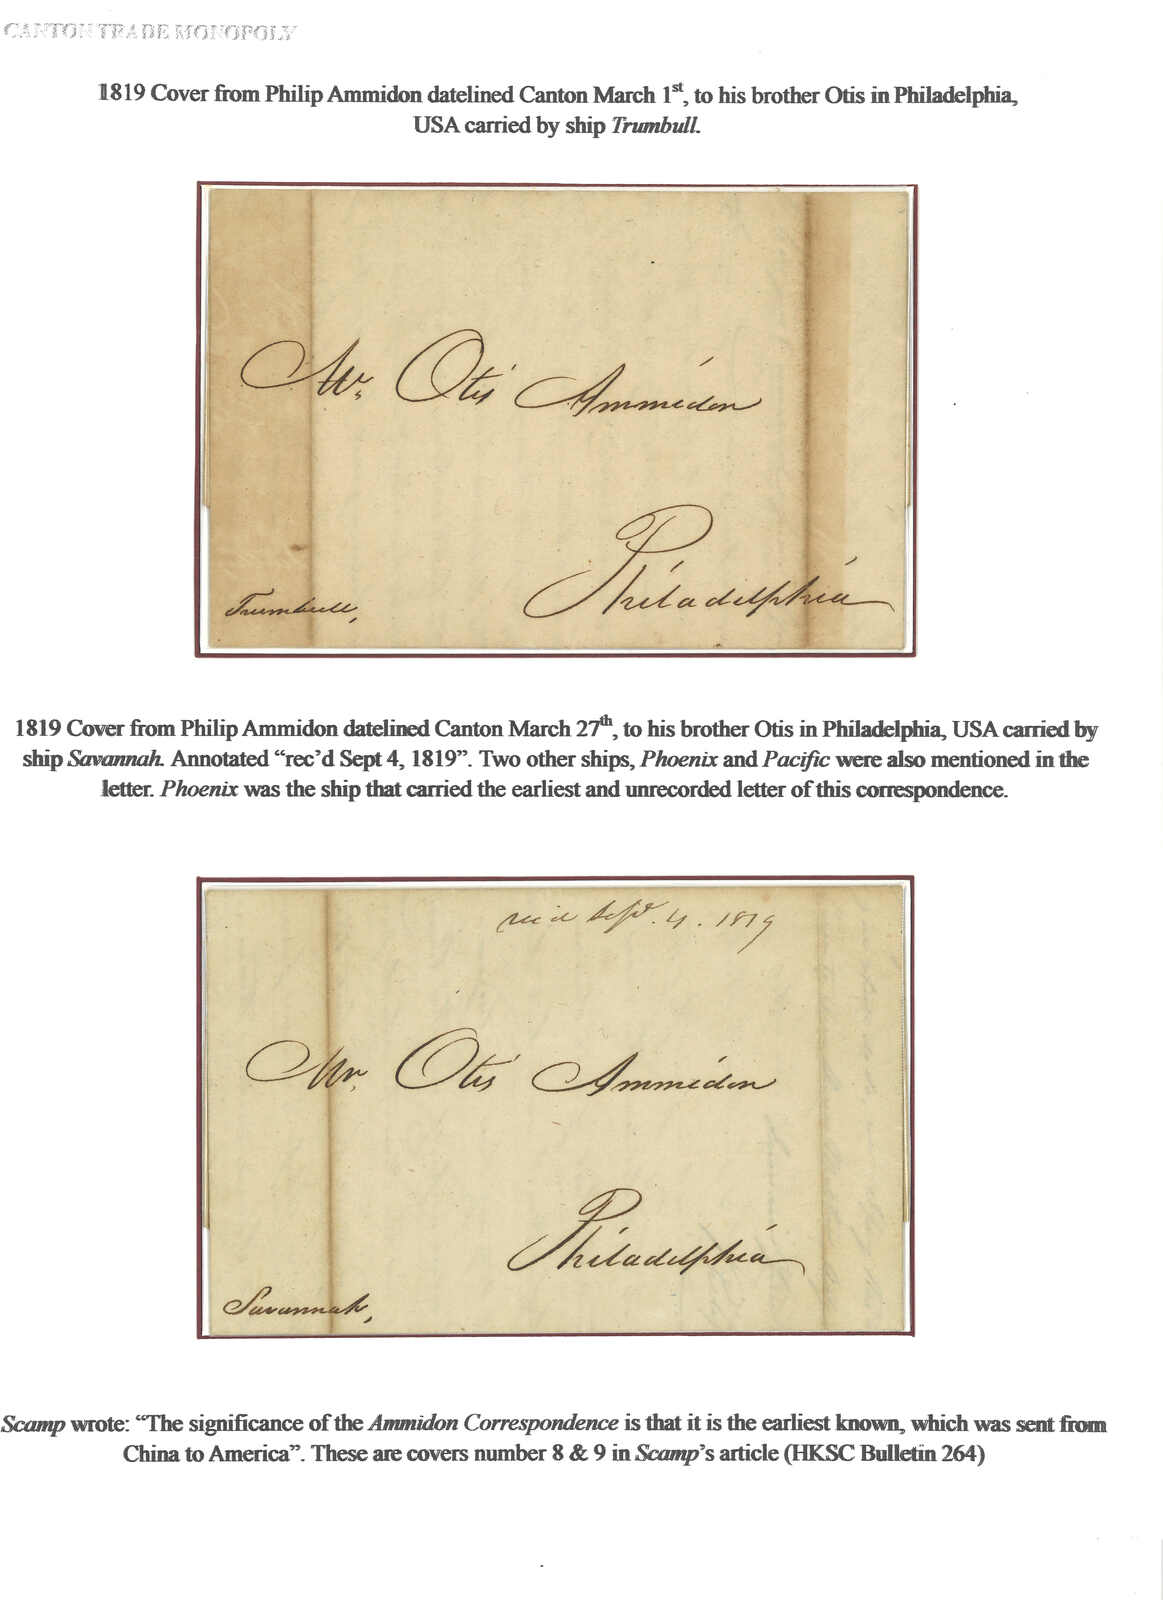 CANTON TRADE MONOPOLY
1819 Cover from Philip Ammidon datelined Canton March 1st, to his brother Otis in Philadelphia,
USA carried by ship Trumbull.
Mr. Otis Ammidon
Philadelphia
Trumbull,
1819 Cover from Philip Ammidon datelined Canton March 27th, to his brother Otis in Philadelphia, USA carried by
ship Savannah. Annotated “rec’d Sept 4, 1819”. Two other ships, Phoenix and Pacific were also mentioned in the
letter. Phoenix was the ship that carried the earliest and unrecorded letter of this correspondence.
rec'd Sept. 4. 1819
Mr. Otis Ammidon
Philadelphia
Savannah,
Scamp wrote: “The significance of the Ammidon Correspondence is that it is the earliest known, which was sent from
China to America”. These are covers number 8 & 9 in Scamp’s article (HKSC Bulletin 264)